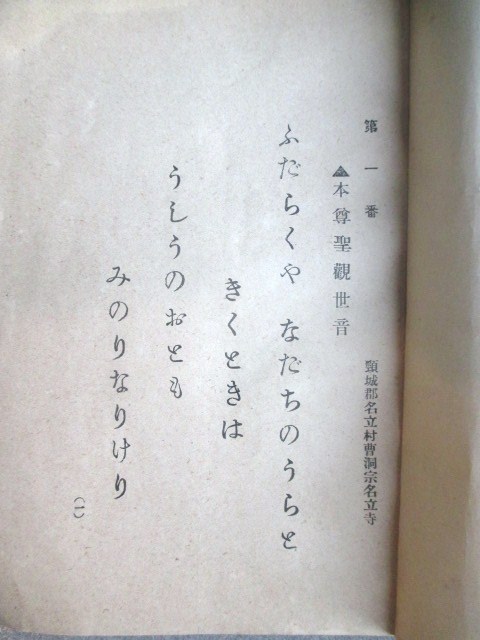 第一番
頸城郡名立村曹洞宗名立寺
▲本尊聖觀世音
ふだらくや なだちのうらと
きくときは
うしうのおとも
みのりなりけり
(一)